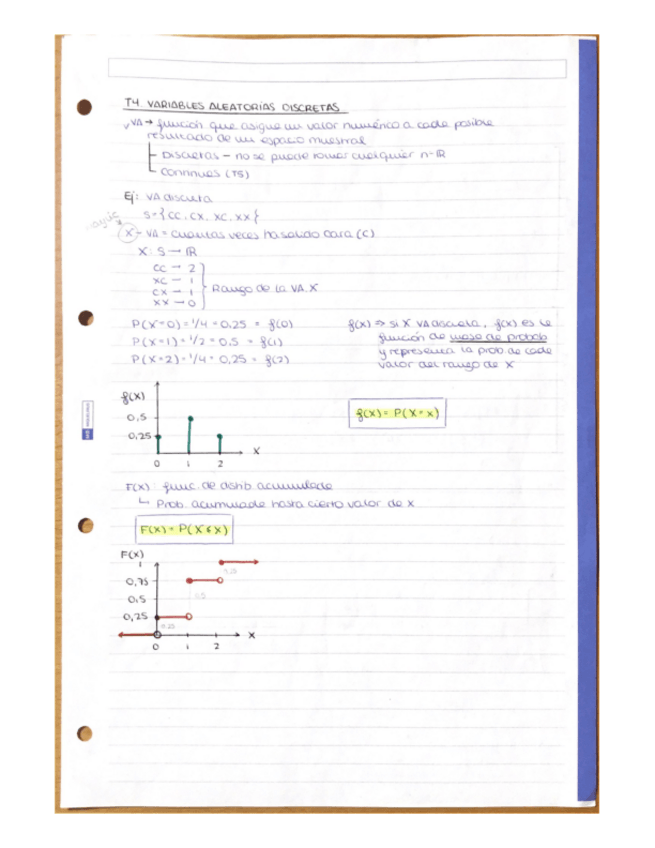 T4. VARIABLES ALEATORIAS DISCRETAS
VA → función que asigne un valor numérico a cada posible
resultado de un espacio muestral
Discretas – no se puede tomar cualquier n- ℝ
Continuas (T5)
Ej: VA discreta
S = { CC, CX, XC, XX }
X – VA = cuantas veces ha salido cara (C)
X : S → ℝ
CC → 2
XC → 1
CX → 1
XX → 0
Rango de la VA X
P(X=0) = 1/4 = 0,25 = f(0)
P(X=1) = 1/2 = 0,5 = f(1)
P(X=2) = 1/4 = 0,25 = f(2)
f(x) ⇒ si X VA discreta, f(x) es la
función de masa de probab
y representa la prob de cada
valor del rango de X
f(x) = P(X=x)
f(x)
0,5
0,25
0 1 2 X
F(x) : func. de distrib acumulada
↳ Prob. acumulada hasta cierto valor de x
F(x) = P(X≤x)
F(x)
1
0,75
0,5
0,25
0,25
0,5
0,25
0 1 2 X